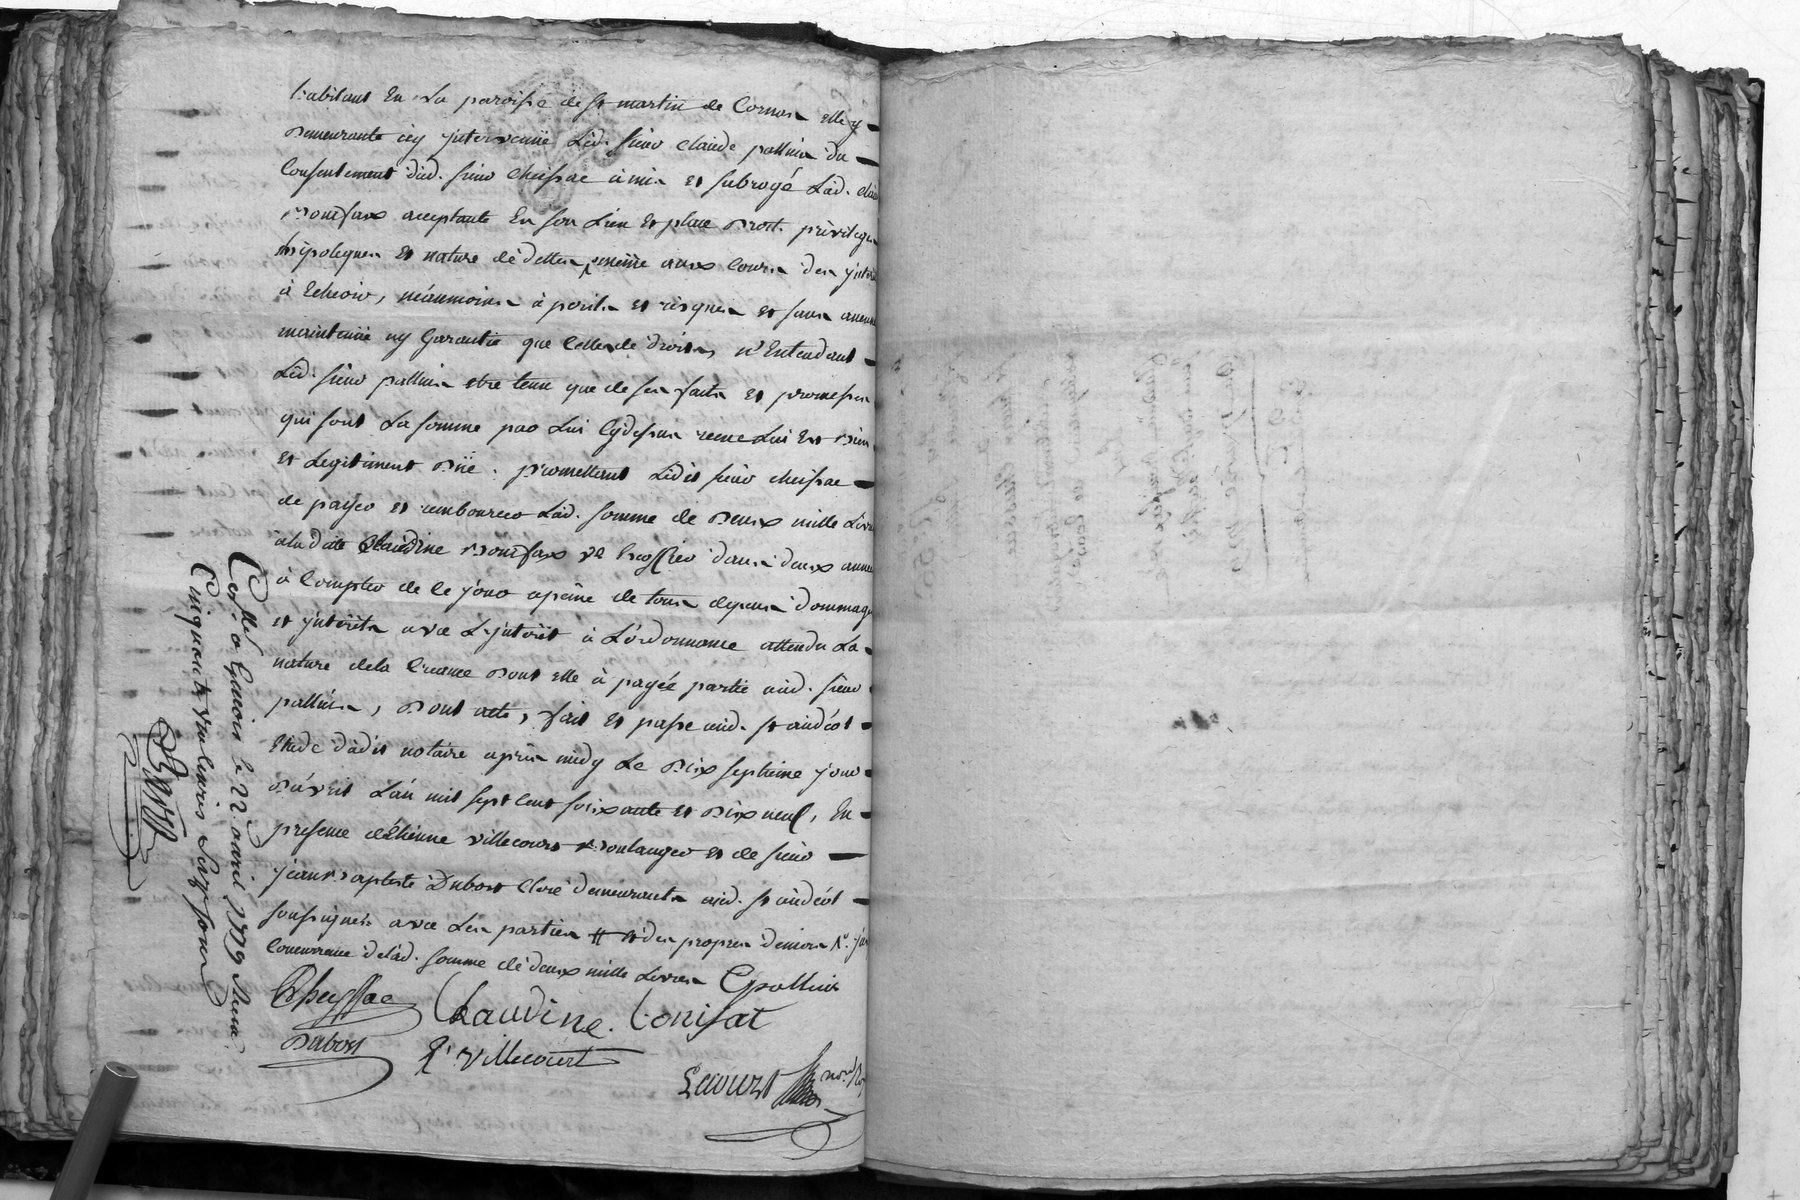 habitant En La paroisse de st martin de Cornas elle y
Demeurante icy jntervenüe Led. sieur claude pallier du
Consentement dud. sieur cheissac à mis et subrogé Lad.
Bonifax acceptante En son Lieu et place Droits privileges
hipoteques et nature de dettes, meme aux Cours des jnterets
à Echeoir, néanmoins à perils et risques et sans aucune
maintenüe ny Garantie que Celle de droits, n'Entendant
Led. sieur pallier etre tenu que de ses faits et promesses
qui sont La somme par Lui Cydessus recue Lui Est Bien
et Legitiment Düe. promettant Ledit sieur cheissac
de payer et rembourcer Lad. somme de Deux mille Livres
à ladite Claudine Bonifax ve dans deux années
à Compter de Ce jour apeine de tous depens dommages
et jnterets avec L'jnteret à L'ordonnance attendu La
nature dela Creance Dont elle à payée partie aud. sieur
pallier, Dont acte, fait et passe aud. st andéol
Etude dudit notaire après midy Le Dix septieme jour
D'avril L'an mil sept Cent soixante et Dix neuf, En
presence d'Etienne villecourt Boulanger et de sieur
jean Baptiste Dubost Clerc demeurants aud. st andéol
soussignés avec Les parties et des propres deniers
Concurrance delad. somme de deux mille Livres Cpallier
Cheyssac Claudine. bonifat
Dubost E. villecourt
Lecourt
Collé a Givors le 22 avril 1779 Reçu
Cinquante un livres Six sous